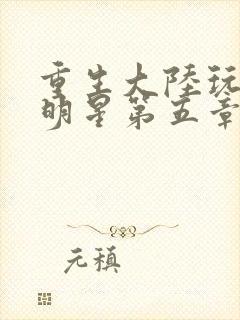 重生大陸玩
明星第五章
元稹